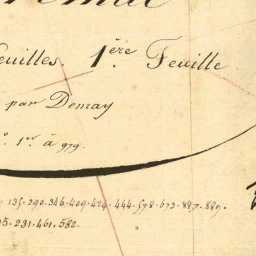 euilles. 1ère Feuille
par Demay
o. 1er à 979.
135. 290. 346. 409. 424. 444. 578. 673. 887. 889.
5. 231. 461. 582.